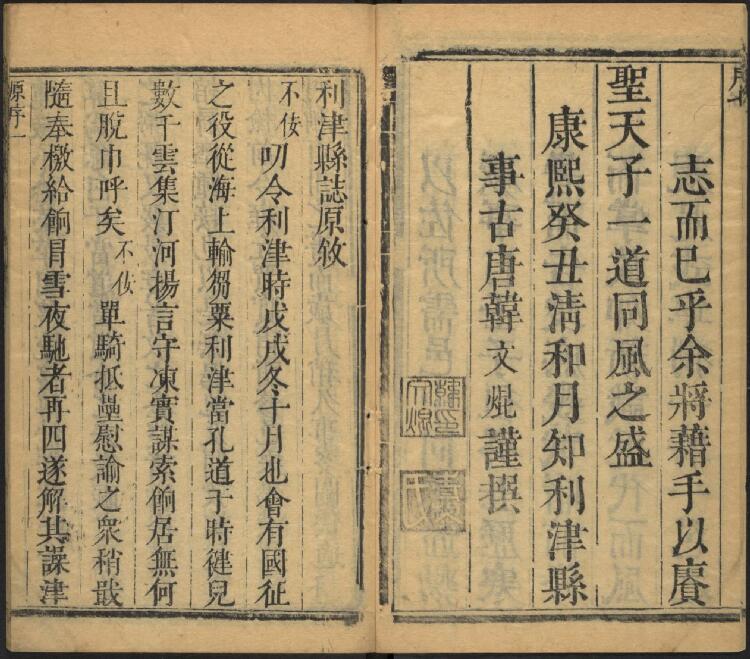 序七
志而已乎余將藉手以賡
聖天子一道同風之盛
康熙癸丑清和月知利津縣
事古唐韓文焜謹撰
利津縣誌原敘
不佞叨令利津時戊戌冬十月也會有國征
之役從海上輸芻粟利津當孔道于時健兒
數千雲集汀河揚言守凍實謀索餉居無何
且脫巾呼矣不佞單騎抵壘慰諭之衆稍戢
隨奉檄給餉月雪夜馳者再四遂解其譟津
源序一